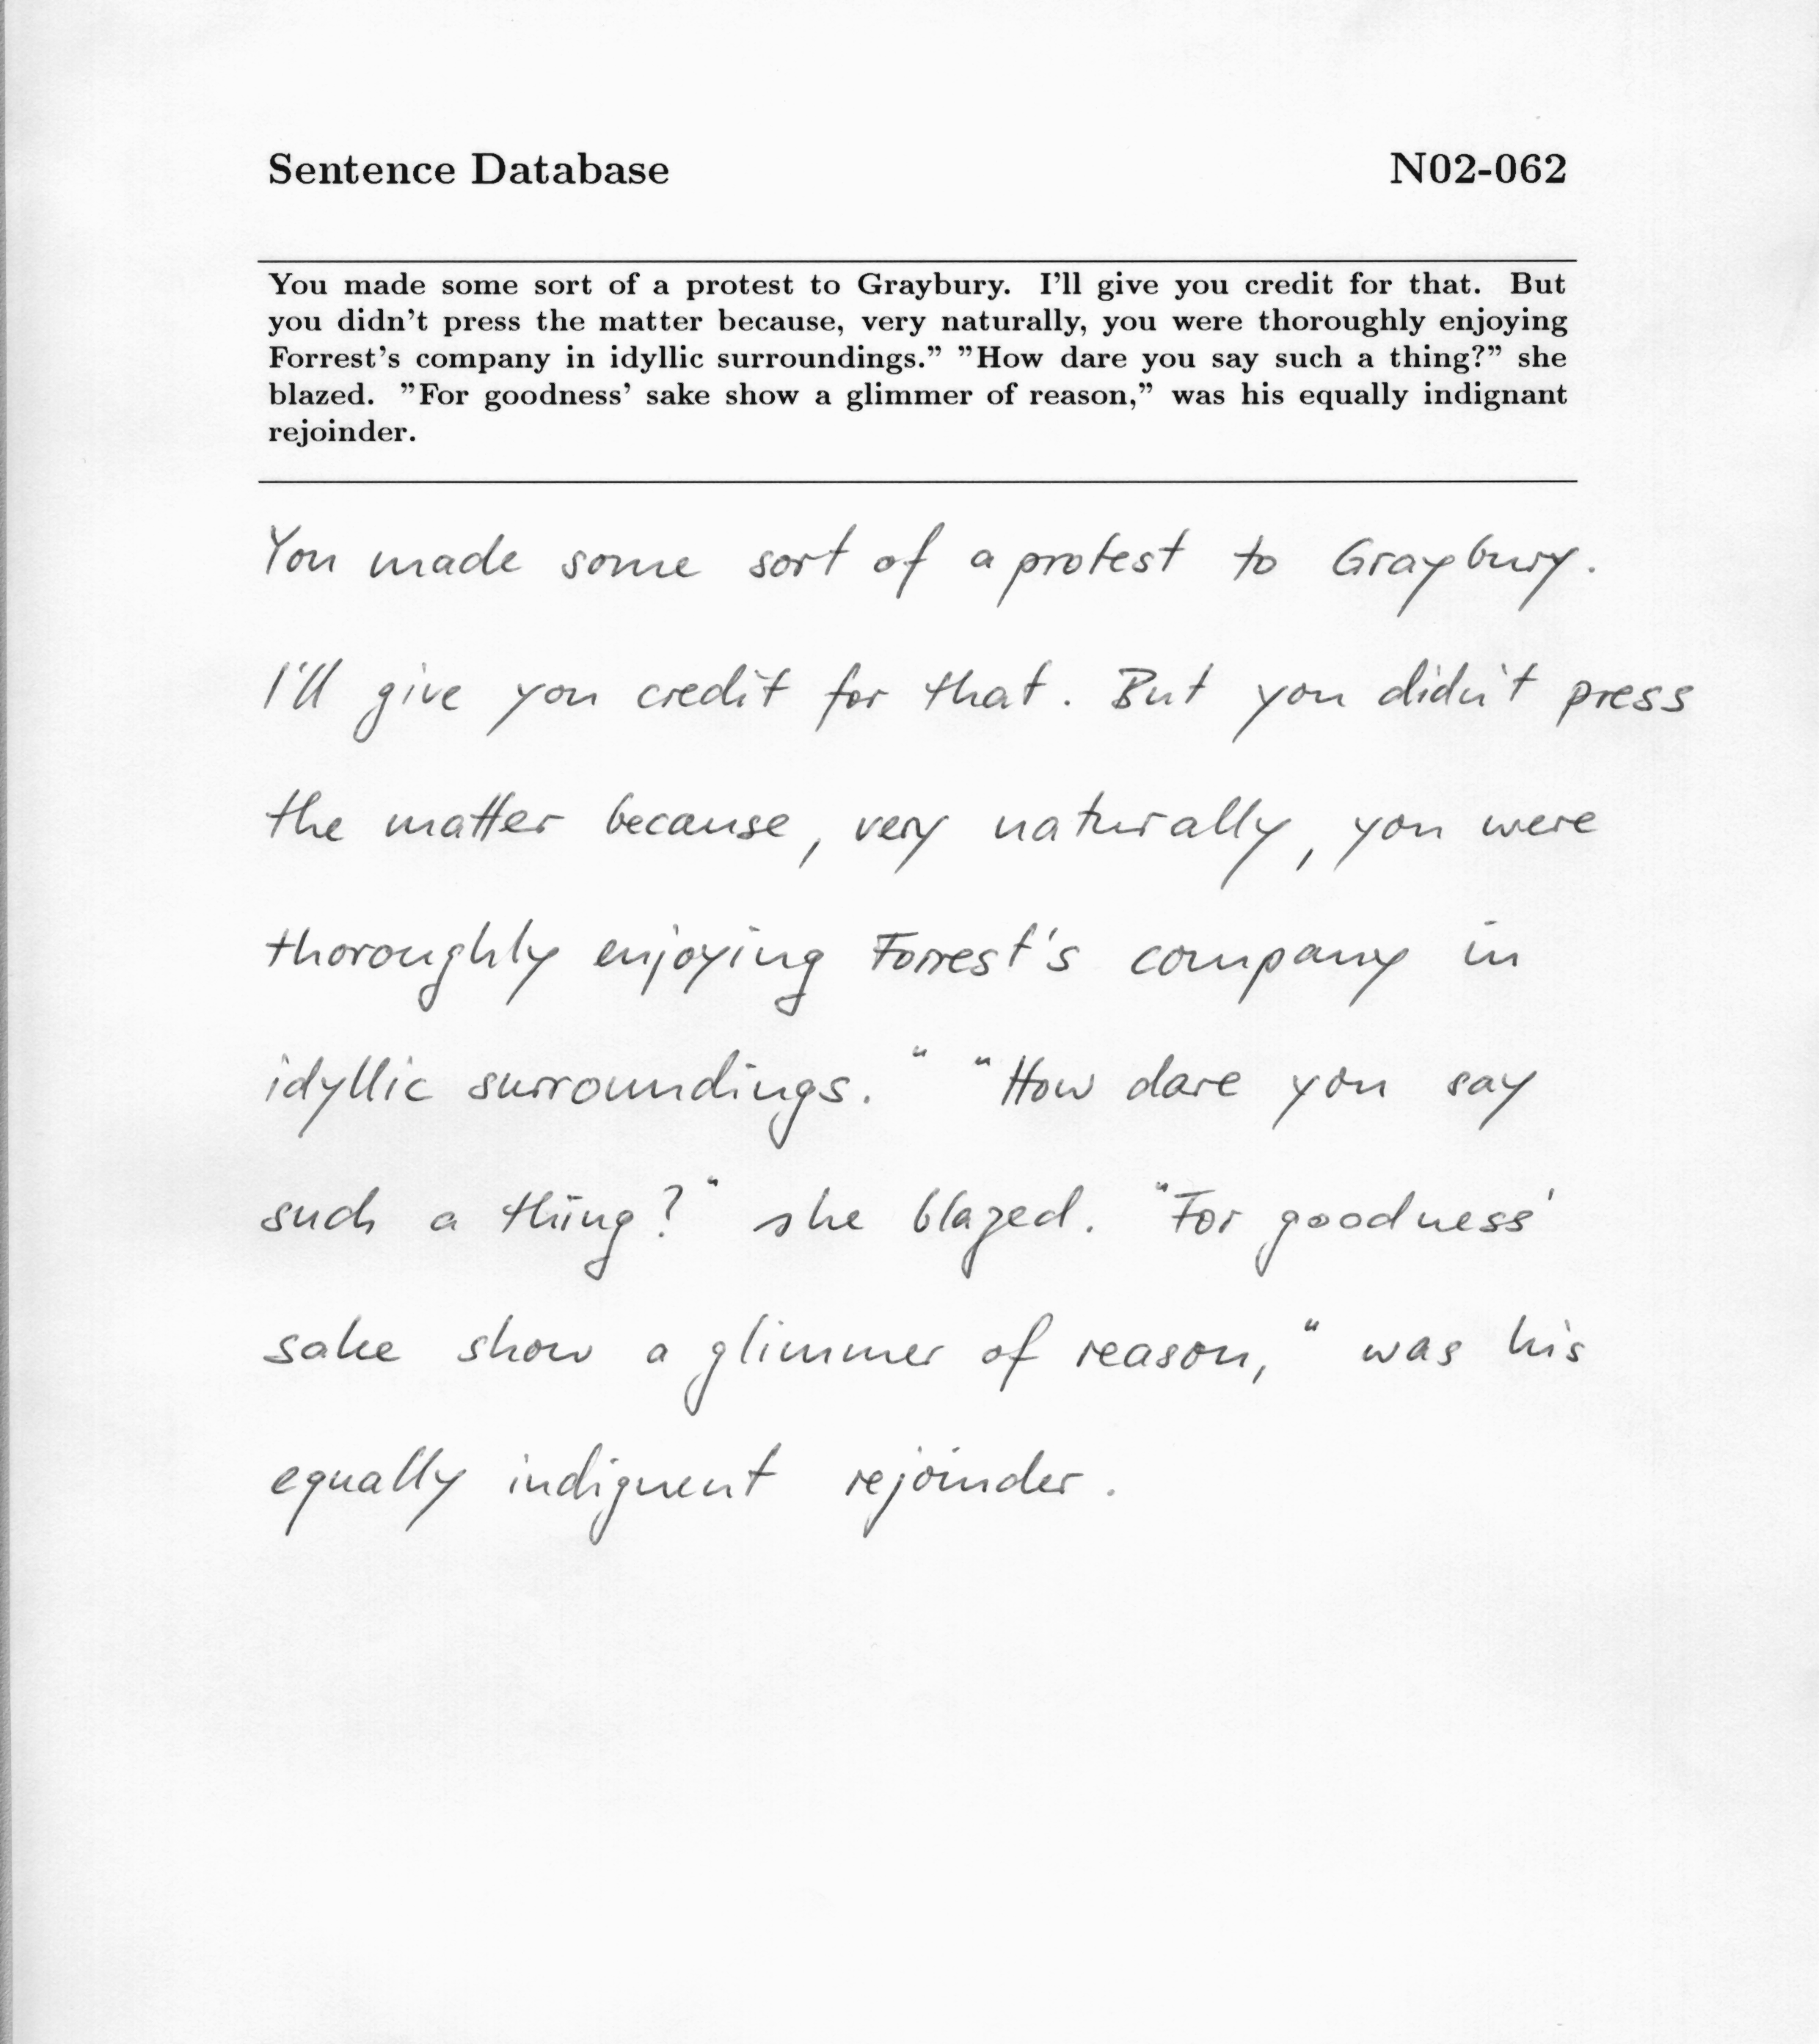 Sentence Database N02-062
You made some sort of a protest to Graybury. I'll give you credit for that. But
you didn't press the matter because, very naturally, you were thoroughly enjoying
Forrest's company in idyllic surroundings.” ”How dare you say such a thing?” she
blazed. ”For goodness' sake show a glimmer of reason,” was his equally indignant
rejoinder.
You made some sort of a protest to Graybury.
I'll give you credit for that. But you didn't press
the matter because, very naturally, you were
thoroughly enjoying Forrest's company in
idyllic surroundings." "How dare you say
such a thing?" she blazed. "For goodness'
sake show a glimmer of reason," was his
equally indignent rejoinder.